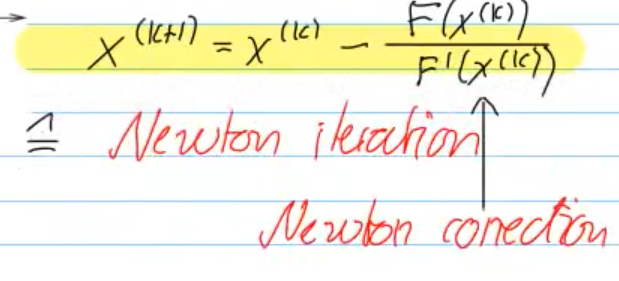 x^(k+1) = x^(k) − F(x^(k)) / F'(x^(k))
≙ Newton iteration
Newton correction